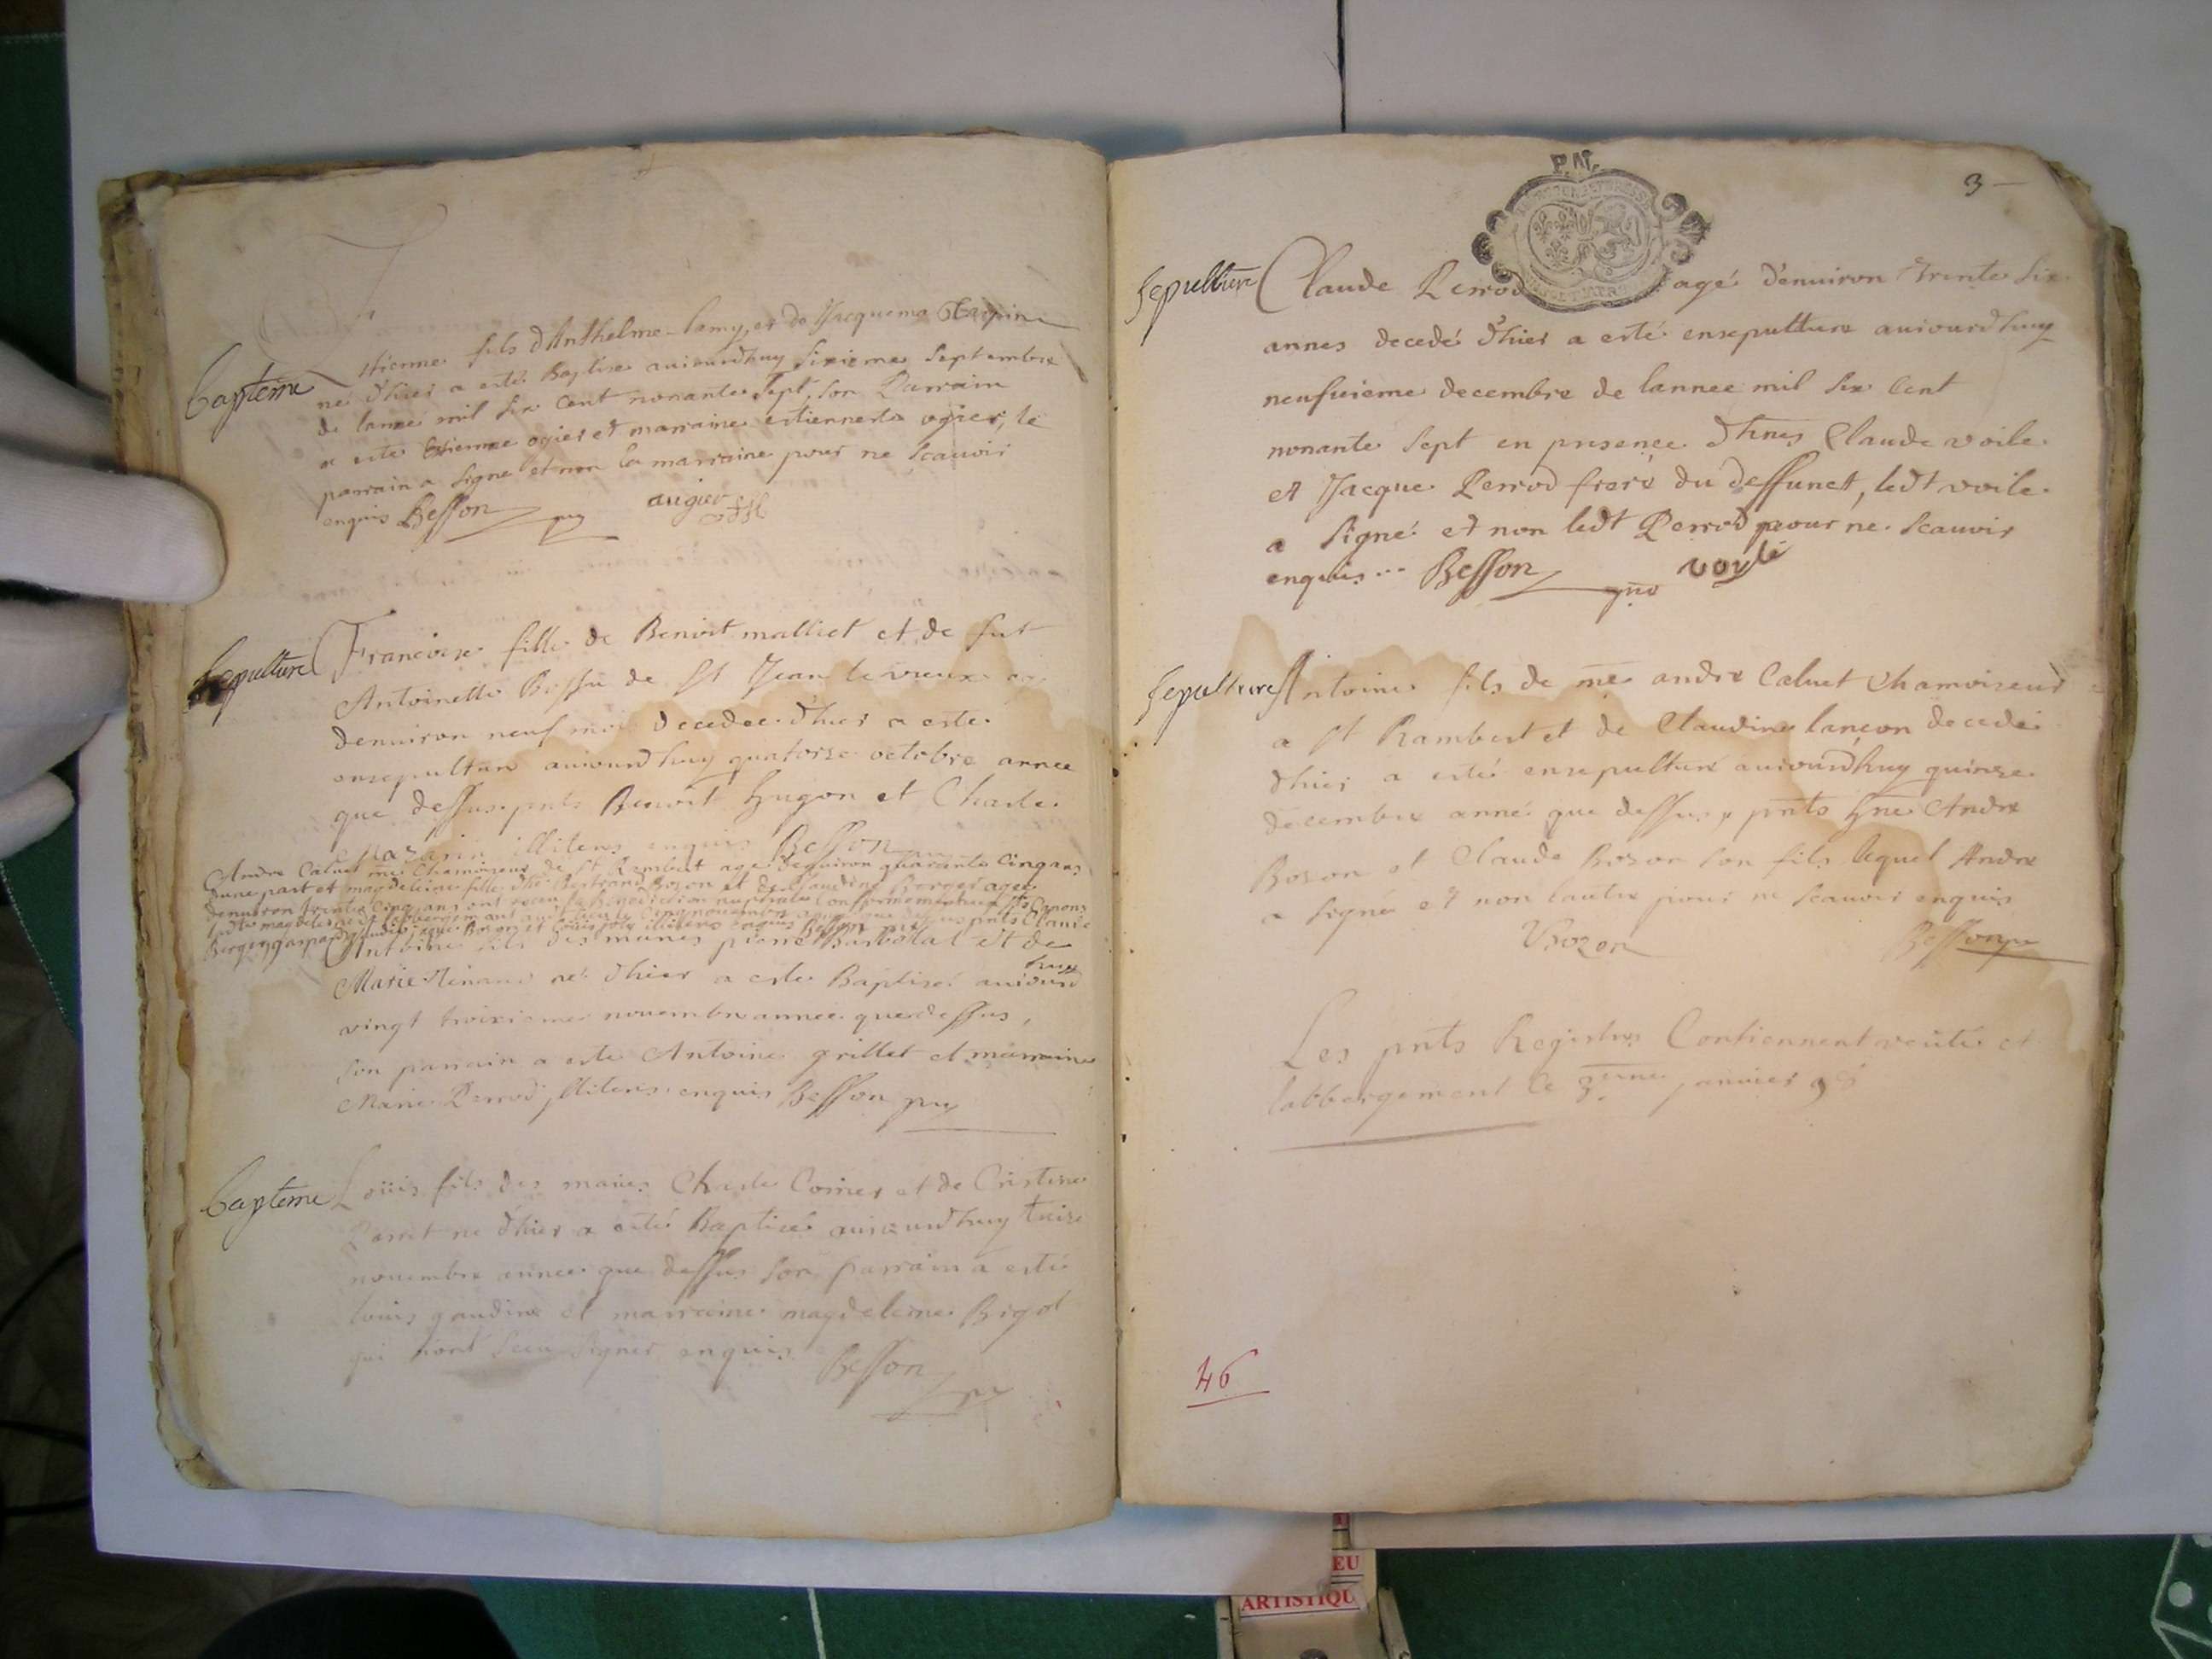 Bapteme
Estienne fils d'Anthelme lamy, et de Jacquema
né d'hier a esté Baptisé auiourdhuy sixieme septembre
de lanné mil six cent nonante sept, son Parrain
a esté Estienne ogier et marraine estiennette ogier, le
parrain a signé et non la marraine pour ne scauoir
enquis Besson augier
Sepulture
Francoise fille de Benoit malliet et de fut
Antoinette Bossu de St Jean le vieux
denuiron neuf mois decedee d'hier a esté
ensepulture auiourdhuy quatorse octobre annee
que dessus pnts Benoit hugon et Charle
illiteres enquis Besson
Andre Caluet me Chamoiseur de St Rambert agé denuiron quarante Cinq ans
dune part et magdeleine fille d'he Bertrand Bozon et de Claudine Berger agee
denuiron trente Cinq ans ont receu la Benediction nuptiale Conformement aux Sts Canons
Berger gaspard illiteres enquis Besson
Antoine fils des maries pierre Barbollat et de
Marie né d'hier a esté Baptisé auiourd
huy
vingt troisieme nouembre annee que dessus,
son parrain a esté Antoine grillet et marraine
Marie Perrod illiteres enquis Besson
Bapteme
Louis fils des maries Charle Cornier et de Cristine
Perret né d'hier a esté Baptisé auiourdhuy treize
nouembre annee que dessus son parrain a esté
louis gaudine et marraine magdeleine Bigot
qui nont sceu signer enquis Besson
3
P.N.
Sepulture
Claude Perrod agé d'enuiron trente six
annes decedé d'hier a esté ensepulture auiourdhuy
neufuieme decembre de lannee mil six Cent
nonante sept en presence d'hnes Claude voile
et Jacque Perrod frere du deffunct, ledt voile
a signé et non ledt Perrod pour ne scauoir
enquis Besson voyle
Sepulture
Antoine fils de me andre Caluet Chamoiseur
a St Rambert et de Claudine lançon decedé
d'hier a esté ensepulturé auiourdhuy quinze
decembre anné que dessus, pnts hne Andre
Bozon et Claude Bozon son fils lequel Andre
a signé et non lautre pour ne scauoir enquis
Bozon Besson
Les pnts Registres Contiennent verité et
labbergement le 3eme januier 98
46
EU
ARTISTIQU